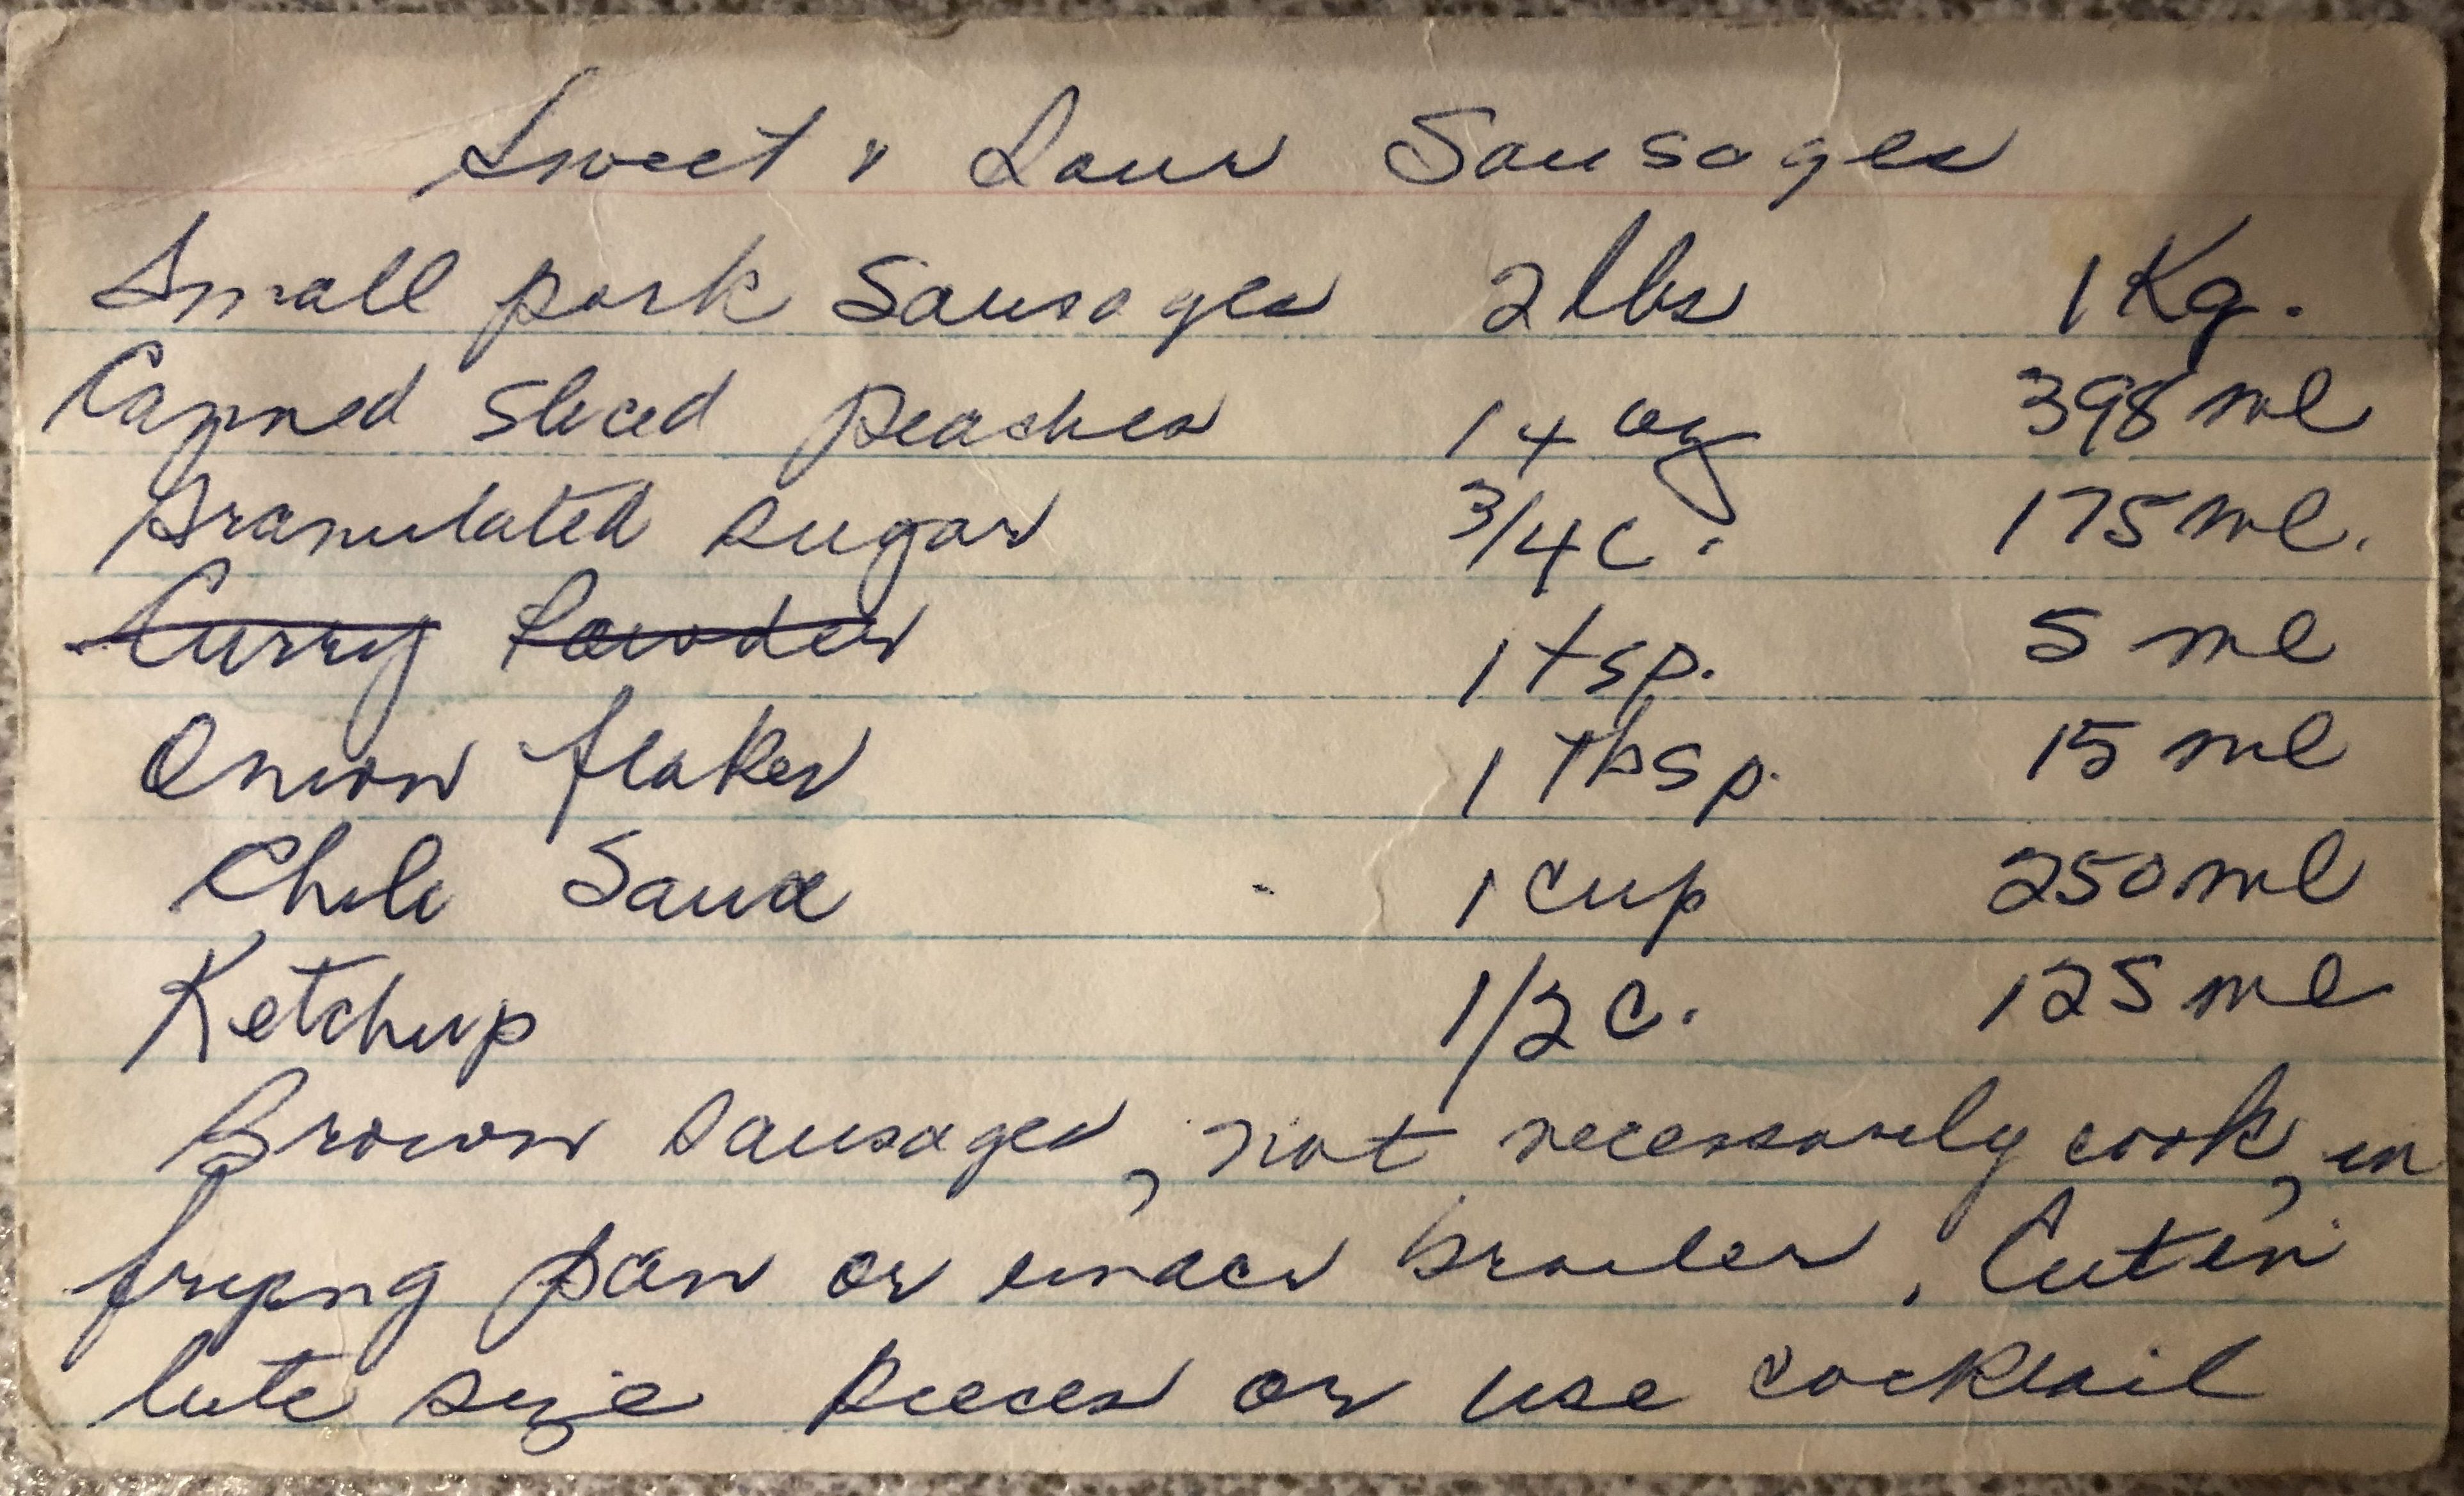 Sweet & Sour Sausages
Small pork Sausages 2 lbs 1 Kg.
Canned sliced peaches 14 oz 398 ml
Granulated sugar 3/4 c. 175 ml.
Curry Powder 1 tsp. 5 ml
Onion flakes 1 Tbsp. 15 ml
Chili Sauce 1 cup 250 ml
Ketchup 1/2 c. 125 ml
Brown sausages, not necessarily cook, in
frying pan or under broiler. Cut in
bite size pieces or use cocktail